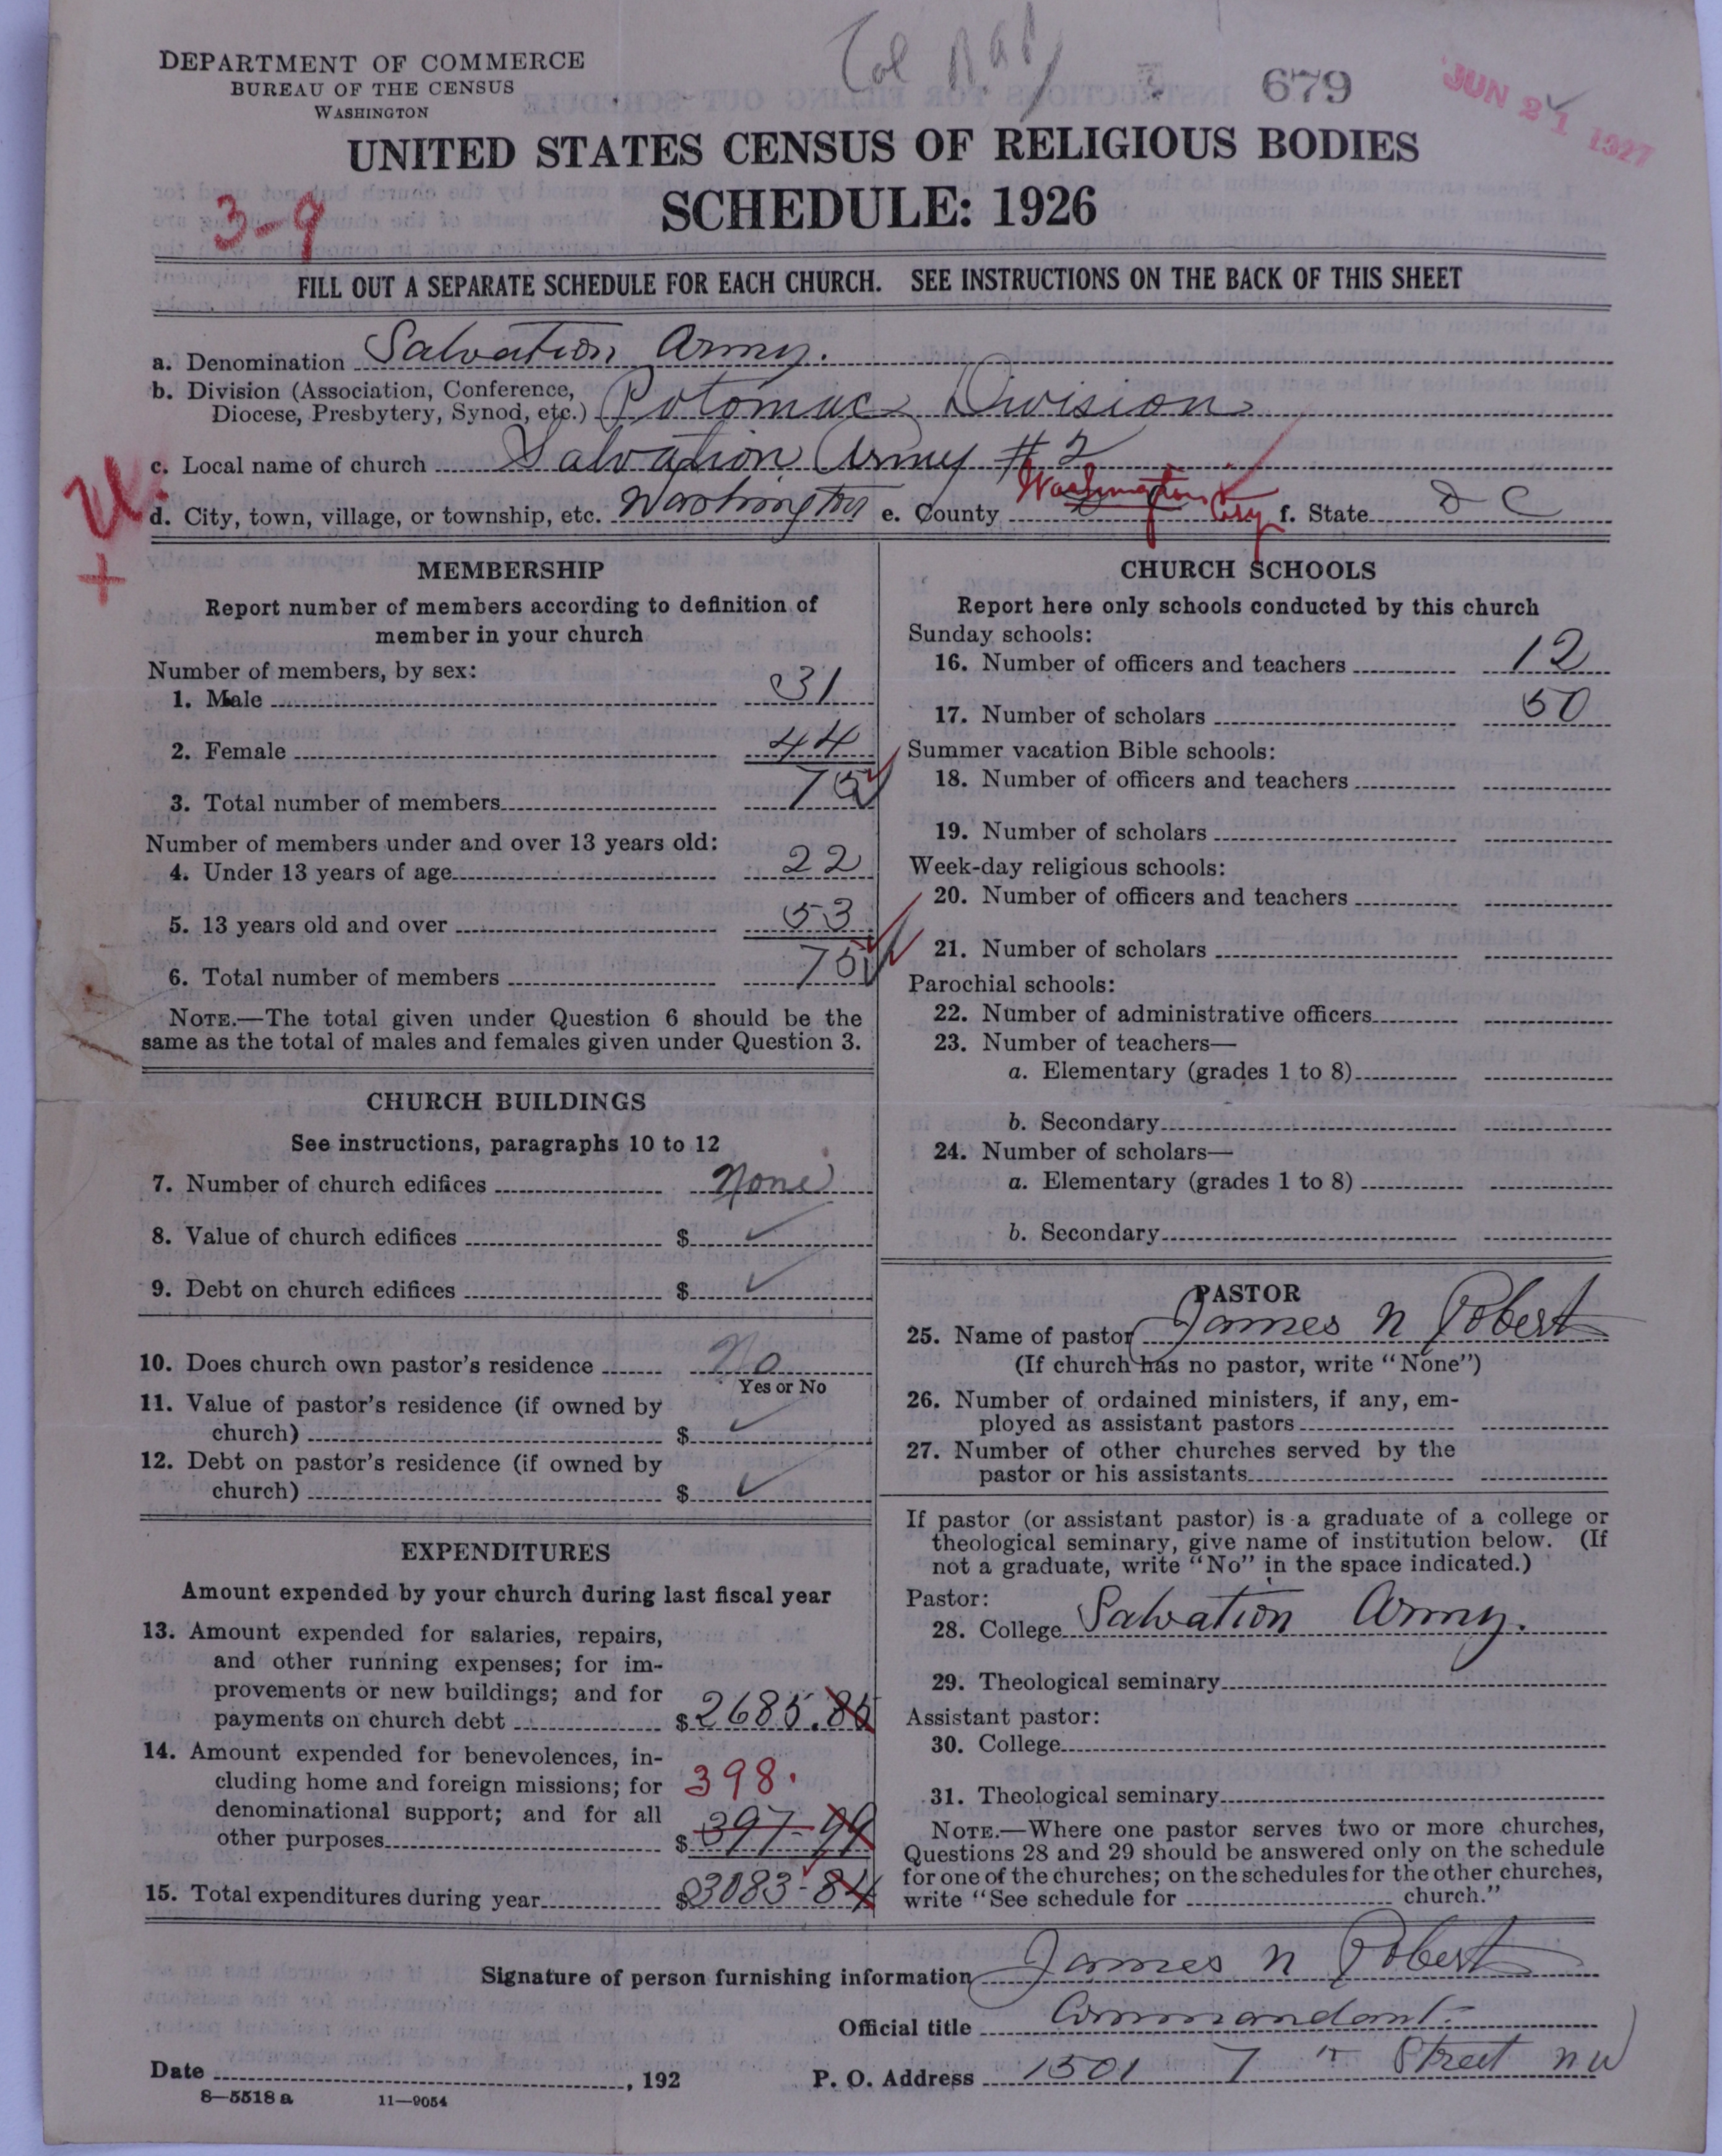 DEPARTMENT OF COMMERCE
BUREAU OF THE CENSUS
WASHINGTON
Col
679
JUN 21 1927
UNITED STATES CENSUS OF RELIGIOUS BODIES
SCHEDULE: 1926
3-9
FILL OUT A SEPARATE SCHEDULE FOR EACH CHURCH. SEE INSTRUCTIONS ON THE BACK OF THIS SHEET
a. Denomination Salvation Army.
b. Division (Association, Conference,
Diocese, Presbytery, Synod, etc.) Potomac Division
c. Local name of church Salvation Army #2
d. City, town, village, or township, etc. Washington e. County Washington City f. State D C
MEMBERSHIP
Report number of members according to definition of
member in your church
Number of members, by sex:
1. Male 31
2. Female 44
3. Total number of members 75
Number of members under and over 13 years old:
4. Under 13 years of age 22
5. 13 years old and over 53
6. Total number of members 75
NOTE.—The total given under Question 6 should be the
same as the total of males and females given under Question 3.
CHURCH BUILDINGS
See instructions, paragraphs 10 to 12
7. Number of church edifices None
8. Value of church edifices $
9. Debt on church edifices $
10. Does church own pastor's residence No
Yes or No
11. Value of pastor's residence (if owned by
church) $
12. Debt on pastor's residence (if owned by
church) $
EXPENDITURES
Amount expended by your church during last fiscal year
13. Amount expended for salaries, repairs,
and other running expenses; for im-
provements or new buildings; and for
payments on church debt $2685.85
14. Amount expended for benevolences, in-
cluding home and foreign missions; for 398.
denominational support; and for all
other purposes $397-99
15. Total expenditures during year $3083-84
CHURCH SCHOOLS
Report here only schools conducted by this church
Sunday schools:
16. Number of officers and teachers 12
17. Number of scholars 50
Summer vacation Bible schools:
18. Number of officers and teachers
19. Number of scholars
Week-day religious schools:
20. Number of officers and teachers
21. Number of scholars
Parochial schools:
22. Number of administrative officers
23. Number of teachers—
a. Elementary (grades 1 to 8)
b. Secondary
24. Number of scholars—
a. Elementary (grades 1 to 8)
b. Secondary
PASTOR
25. Name of pastor James N Robert
(If church has no pastor, write "None")
26. Number of ordained ministers, if any, em-
ployed as assistant pastors
27. Number of other churches served by the
pastor or his assistants
If pastor (or assistant pastor) is a graduate of a college or
theological seminary, give name of institution below. (If
not a graduate, write "No" in the space indicated.)
Pastor:
28. College Salvation Army.
29. Theological seminary
Assistant pastor:
30. College
31. Theological seminary
NOTE.—Where one pastor serves two or more churches,
Questions 28 and 29 should be answered only on the schedule
for one of the churches; on the schedules for the other churches,
write "See schedule for church."
Signature of person furnishing information James N Robert
Official title Commandant.
Date , 192 P. O. Address 1501 7 th Street NW
8—5518 a 11—9054